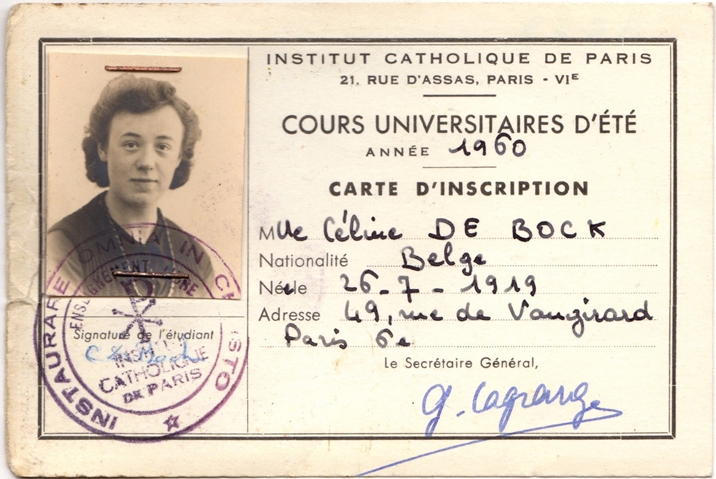 INSTITUT CATHOLIQUE DE PARIS
21, RUE D'ASSAS, PARIS - VIE
COURS UNIVERSITAIRES D'ÉTÉ
ANNÉE 1960
CARTE D'INSCRIPTION
Mlle Céline DE BOCK
Nationalité Belge
Née le 26-7-1919
Adresse 49, rue de Vaugirard
Paris 6e
Le Secrétaire Général,
G. Lagrange
Signature de l'étudiant
INSTAURARE OMNIA IN CHRISTO
CATHOLIQUE
DE PARIS